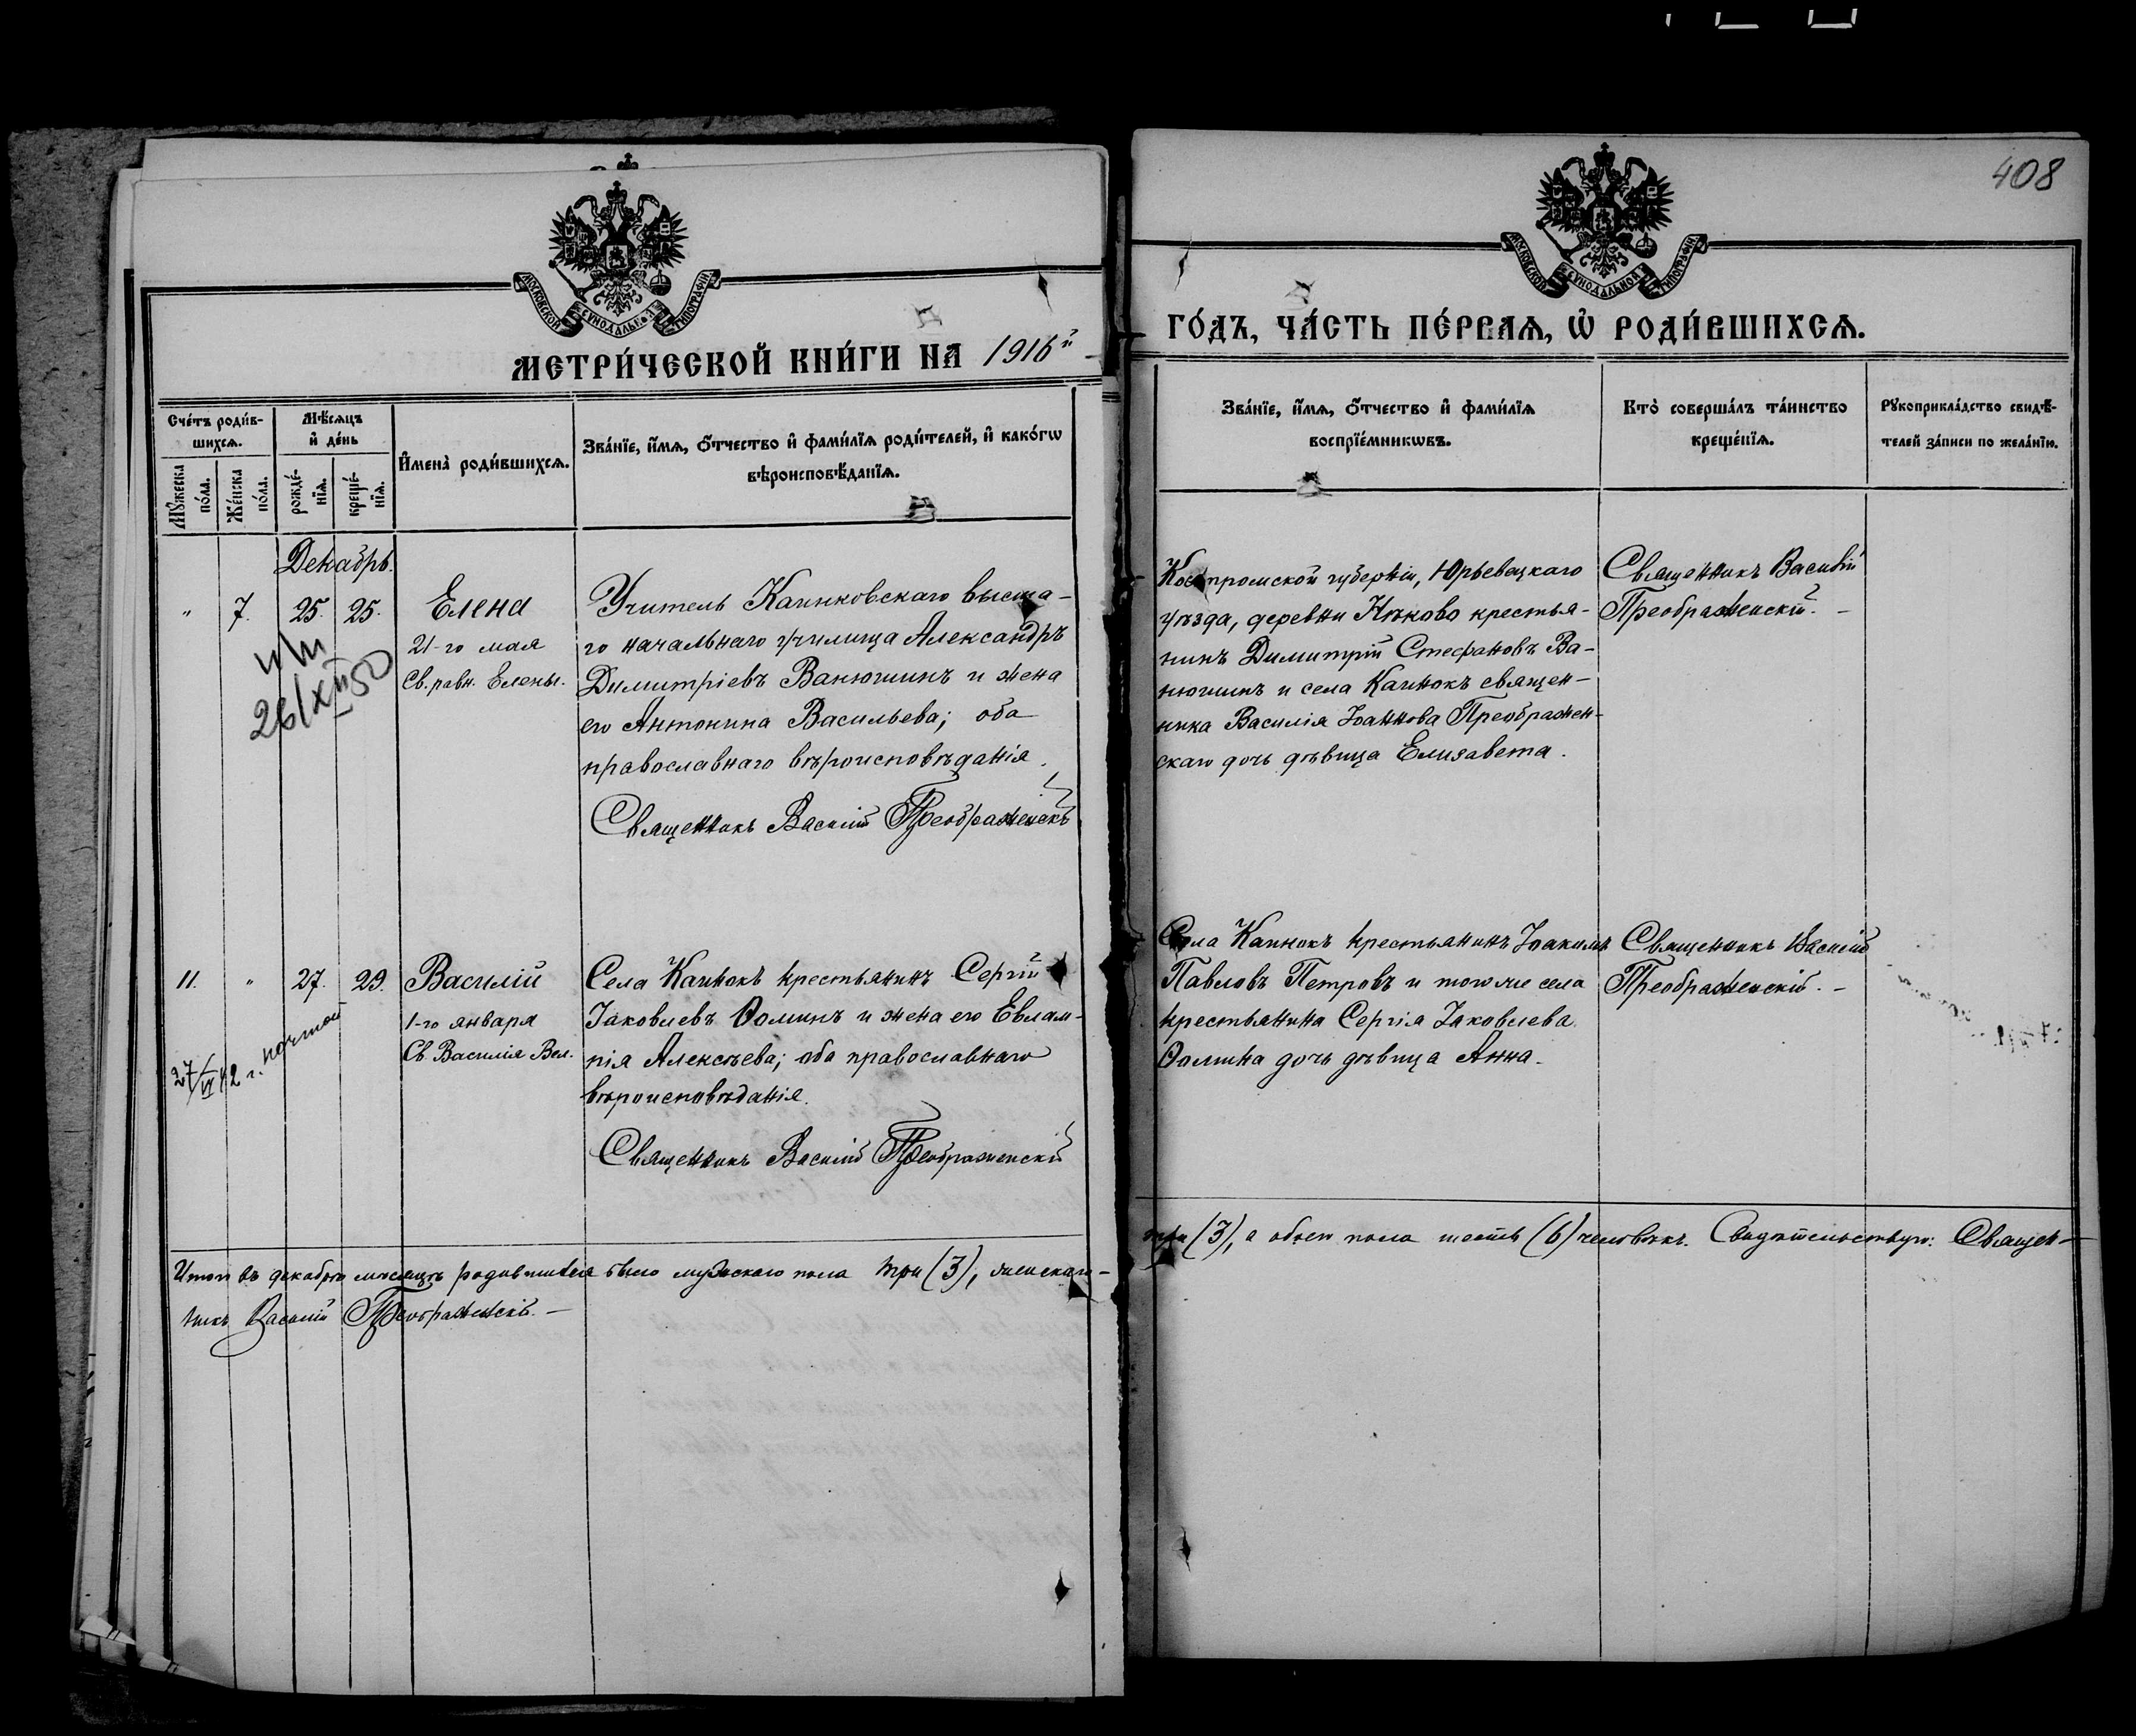 408
МОСКОВСКОЙ СУНОДАЛЬНОЙ ТИПОГРАФІИ
МОСКОВСКОЙ СУНОДАЛЬНОЙ ТИПОГРАФІИ
МЕТРИ́ЧЕСКОЙ КНИ́ГИ НА 1916й
ГО́ДЪ, ЧА́СТЬ ПЕ́РВАѦ, Ѡ РОДИ́ВШИХСѦ.
Сче́тъ роди́в-
шихсѧ.
Мѣ́сѧцъ
и҆ де́нь
Мꙋ́жеска по́ла.
Же́нска по́ла.
рожде́-
нїѧ.
креще́-
нїѧ.
И҆мена̀ роди́вшихсѧ.
Зва́нїе, и҆́мѧ, ѻ҆́тчество и҆ фами́лїѧ роди́телей, и҆ како́гѡ
вѣроисповѣ́данїѧ.
Зва́нїе, и҆́мѧ, ѻ҆́тчество и҆ фами́лїѧ
воспрїе́мникѡвъ.
Кто̀ соверша́лъ та́инство
креще́нїѧ.
Рꙋкоприкла́дство свидѣ́-
телей за́писи по жела́нїю.
Декабрь.
" 7. 25. 25.
Елена
21-го мая
Св. равн. Елены.
26/XII 50
Учитель Каинковскаго высша-
го начальнаго училища Александръ
Димитріевъ Ванюшинъ и жена
его Антонина Васильева; оба
православнаго вѣроисповѣданія.
Священникъ Василій Преображенскій
Костромской губерніи, Юрьевецкаго
уѣзда, деревни Нѣково крестья-
нинъ Димитрій Стефановъ Ва-
нюшинъ и села Каинокъ священ-
ника Василія Іоаннова Преображен-
скаго дочь дѣвица Елизавета.
Священникъ Василій
Преображенскій. –
11. " 27. 29.
Василій
1-го января
Св. Василія Вел.
27/VI 42 г. почтой
Села Каинокъ крестьянинъ Сергій
Іаковлевъ Ѳоминъ и жена его Евлам-
пія Алексѣева; оба православнаго
вѣроисповѣданія.
Священникъ Василій Преображенскій
Села Каинокъ крестьянинъ Іоакимъ
Павловъ Петровъ и того же села
крестьянина Сергія Іаковлева
Ѳомина дочь дѣвица Анна.
Священникъ Василій
Преображенскій. –
Итого въ декабрѣ мѣсяцѣ родившихся было мужскаго пола три (3), женскаго –
три (3), а обоего пола шесть (6) человѣкъ. Свидѣтельствую: Священ-
никъ Василій Преображенскій. –